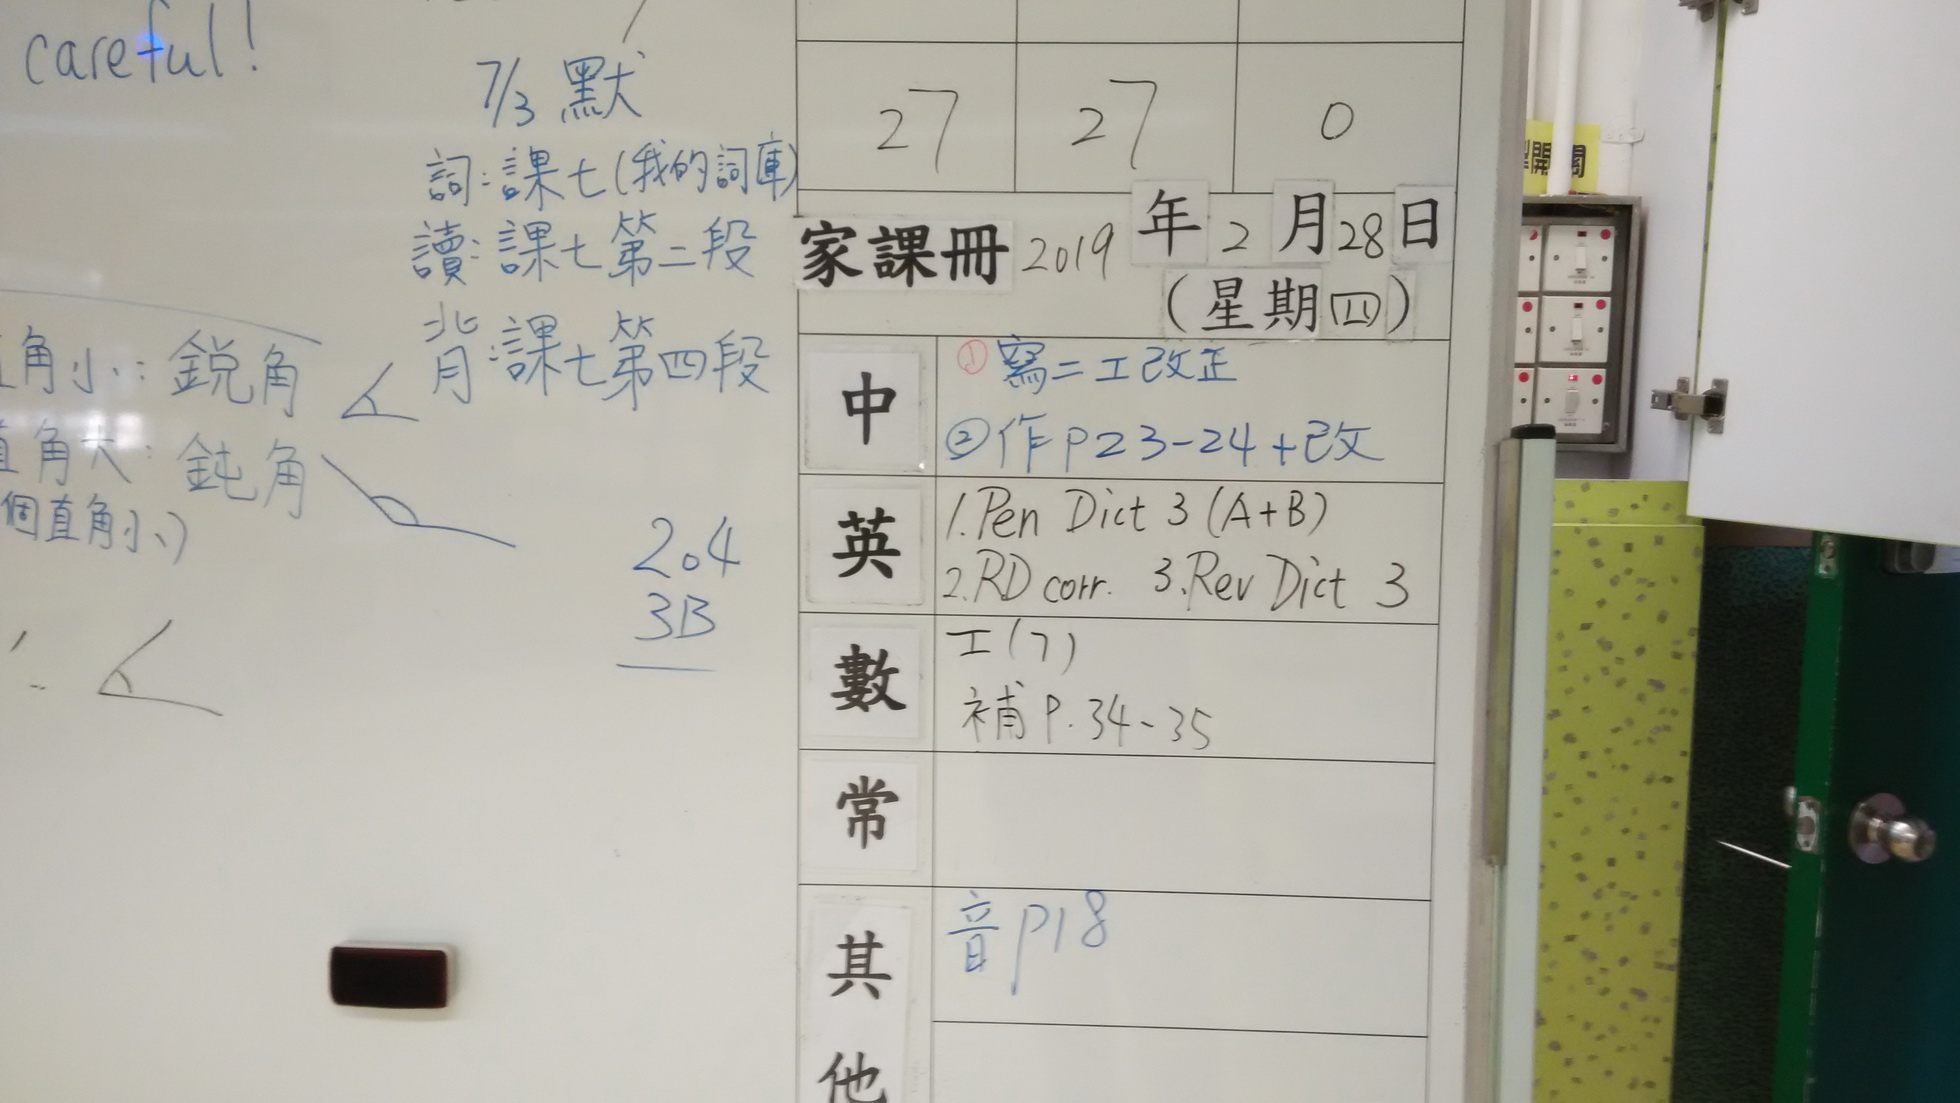 careful!
7/3 默
詞:課七(我的詞庫)
讀:課七第二段
背:課七第四段
角小:鋭角
直角大:鈍角
個直角小)
2.4
3B
27 27 0
家課冊 2019 年 2 月 28 日
(星期四)
中
① 寫二工改正
② 作 P23-24 + 改
英
1. Pen Dict 3 (A+B)
2. RD corr. 3. Rev Dict 3
數
工(7)
補 P. 34-35
常
其他
音 p18